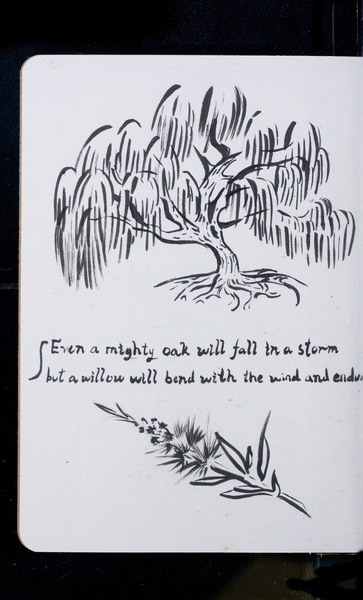 Even a mighty oak will fall in a storm
but a willow will bend with the wind and